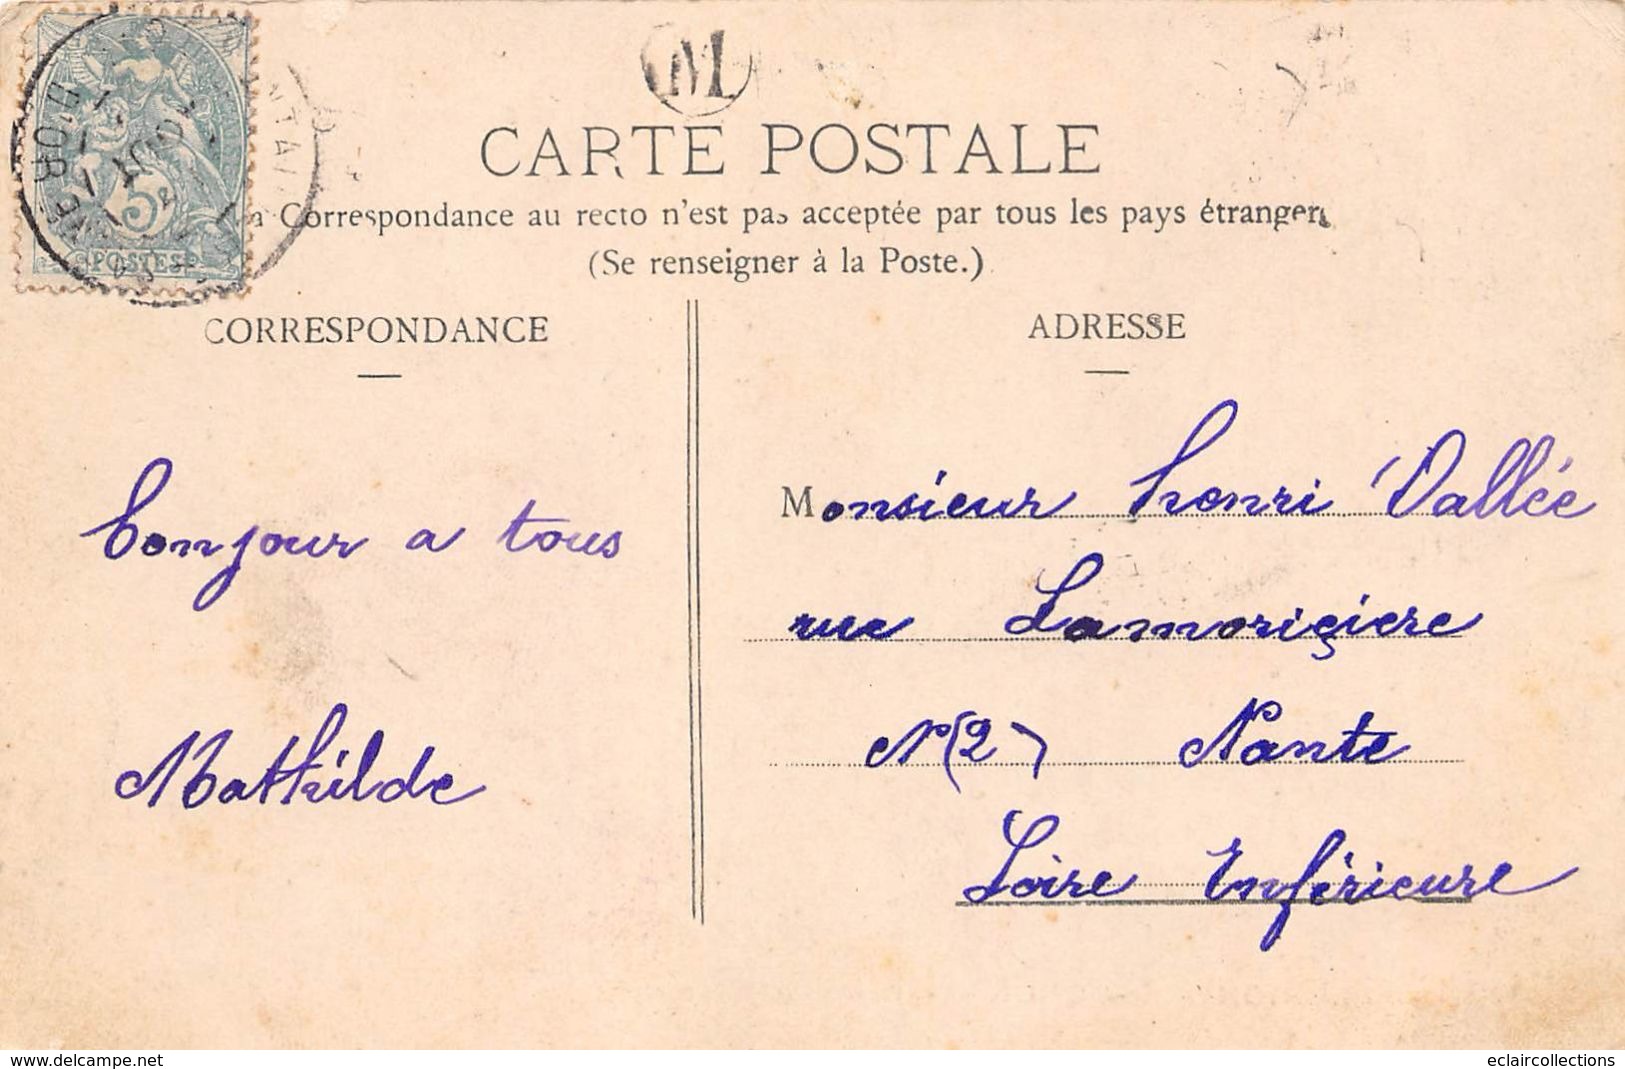 M
CARTE POSTALE
Correspondance au recto n'est pas acceptée par tous les pays étrangers
(Se renseigner à la Poste.)
D'OR
5
POSTES
CORRESPONDANCE
ADRESSE
Bonjour a tous
Mathilde
Monsieur henri Vallée
rue Lamoriçiere
N(2) Nante
Loire Enférieure
www.delcampe.net
eclaircollections